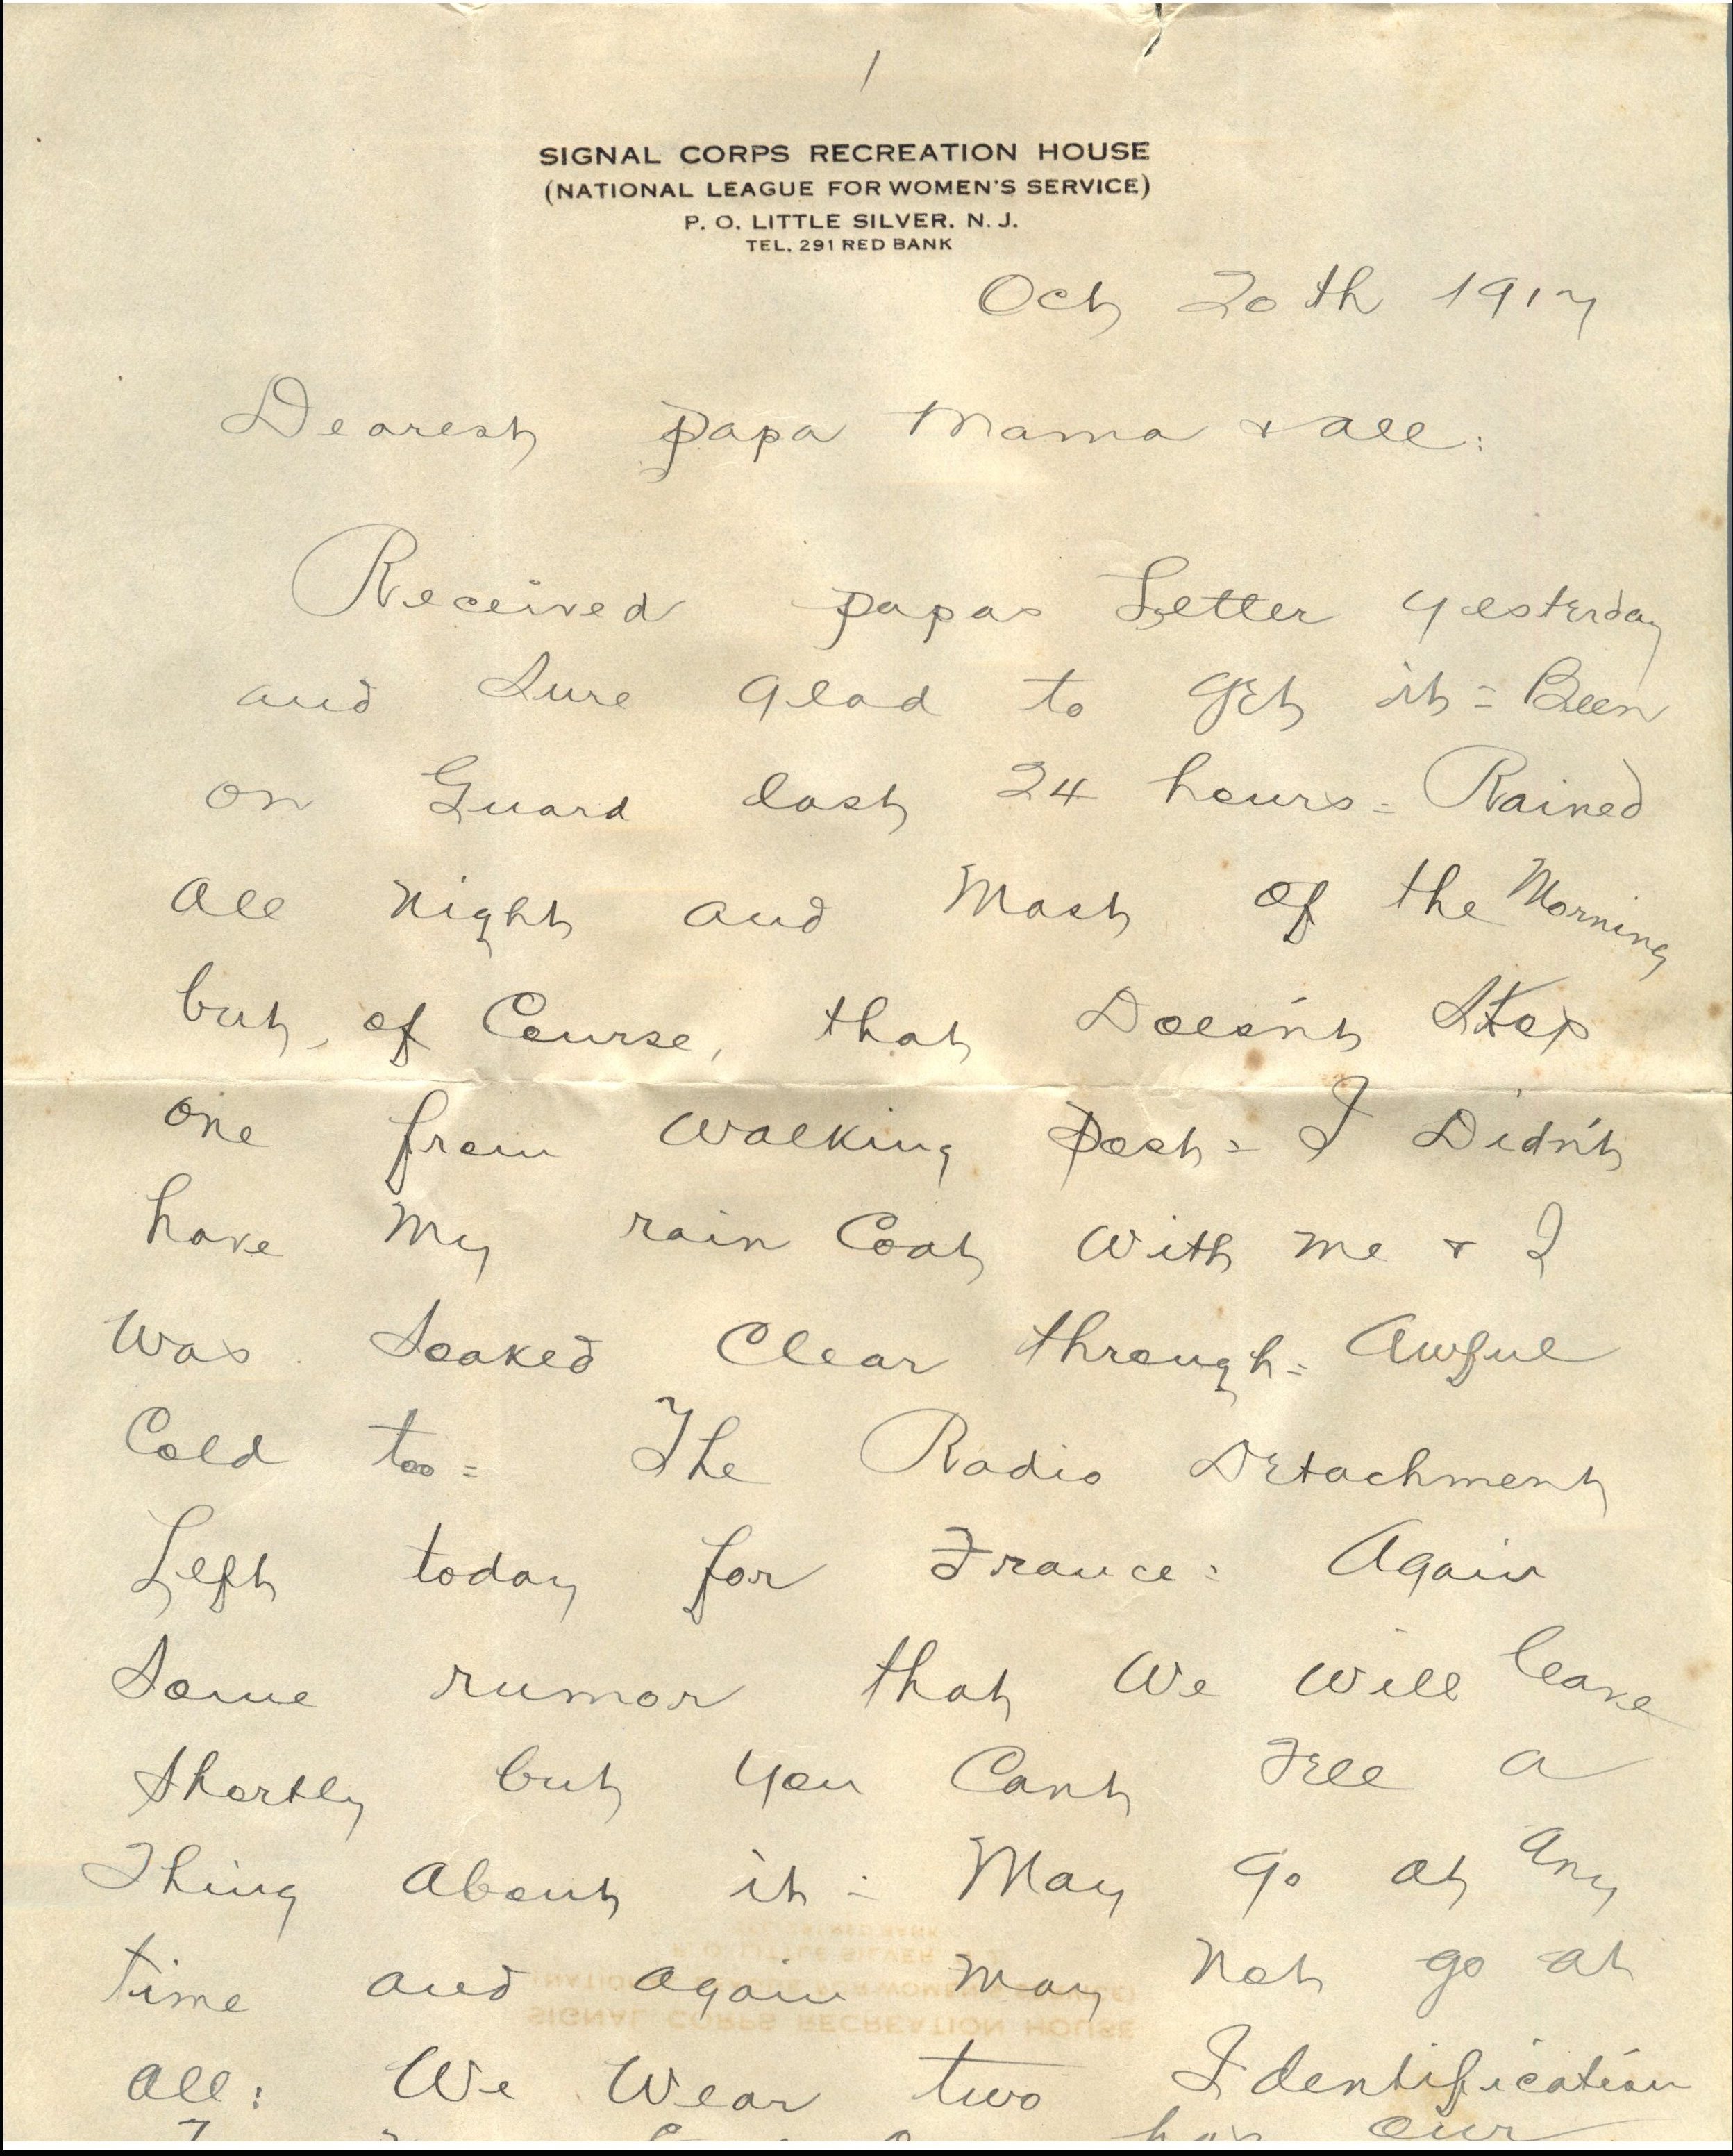 1
SIGNAL CORPS RECREATION HOUSE
(NATIONAL LEAGUE FOR WOMEN'S SERVICE)
P. O. LITTLE SILVER. N. J.
TEL. 291 RED BANK
Oct 20th 1917
Dearest papa Mama & all:
Received papas Letter yesterday
and Sure glad to get it = Been
on Guard last 24 hours = Rained
all night and Most of the Morning
but, of Course, that Doesn't Stop
one from walking Post = I Didn't
have My rain Coat With me & I
Was Soaked Clear through = Awful
Cold too = The Radio Detachment
Left today for France = Again
Some rumor that We will leave
Shortly but you Cant Tell a
Thing about it = May go at any
time and again may not go at
SIGNAL CORPS RECREATION HOUSE
all: We Wear two Identification
has our